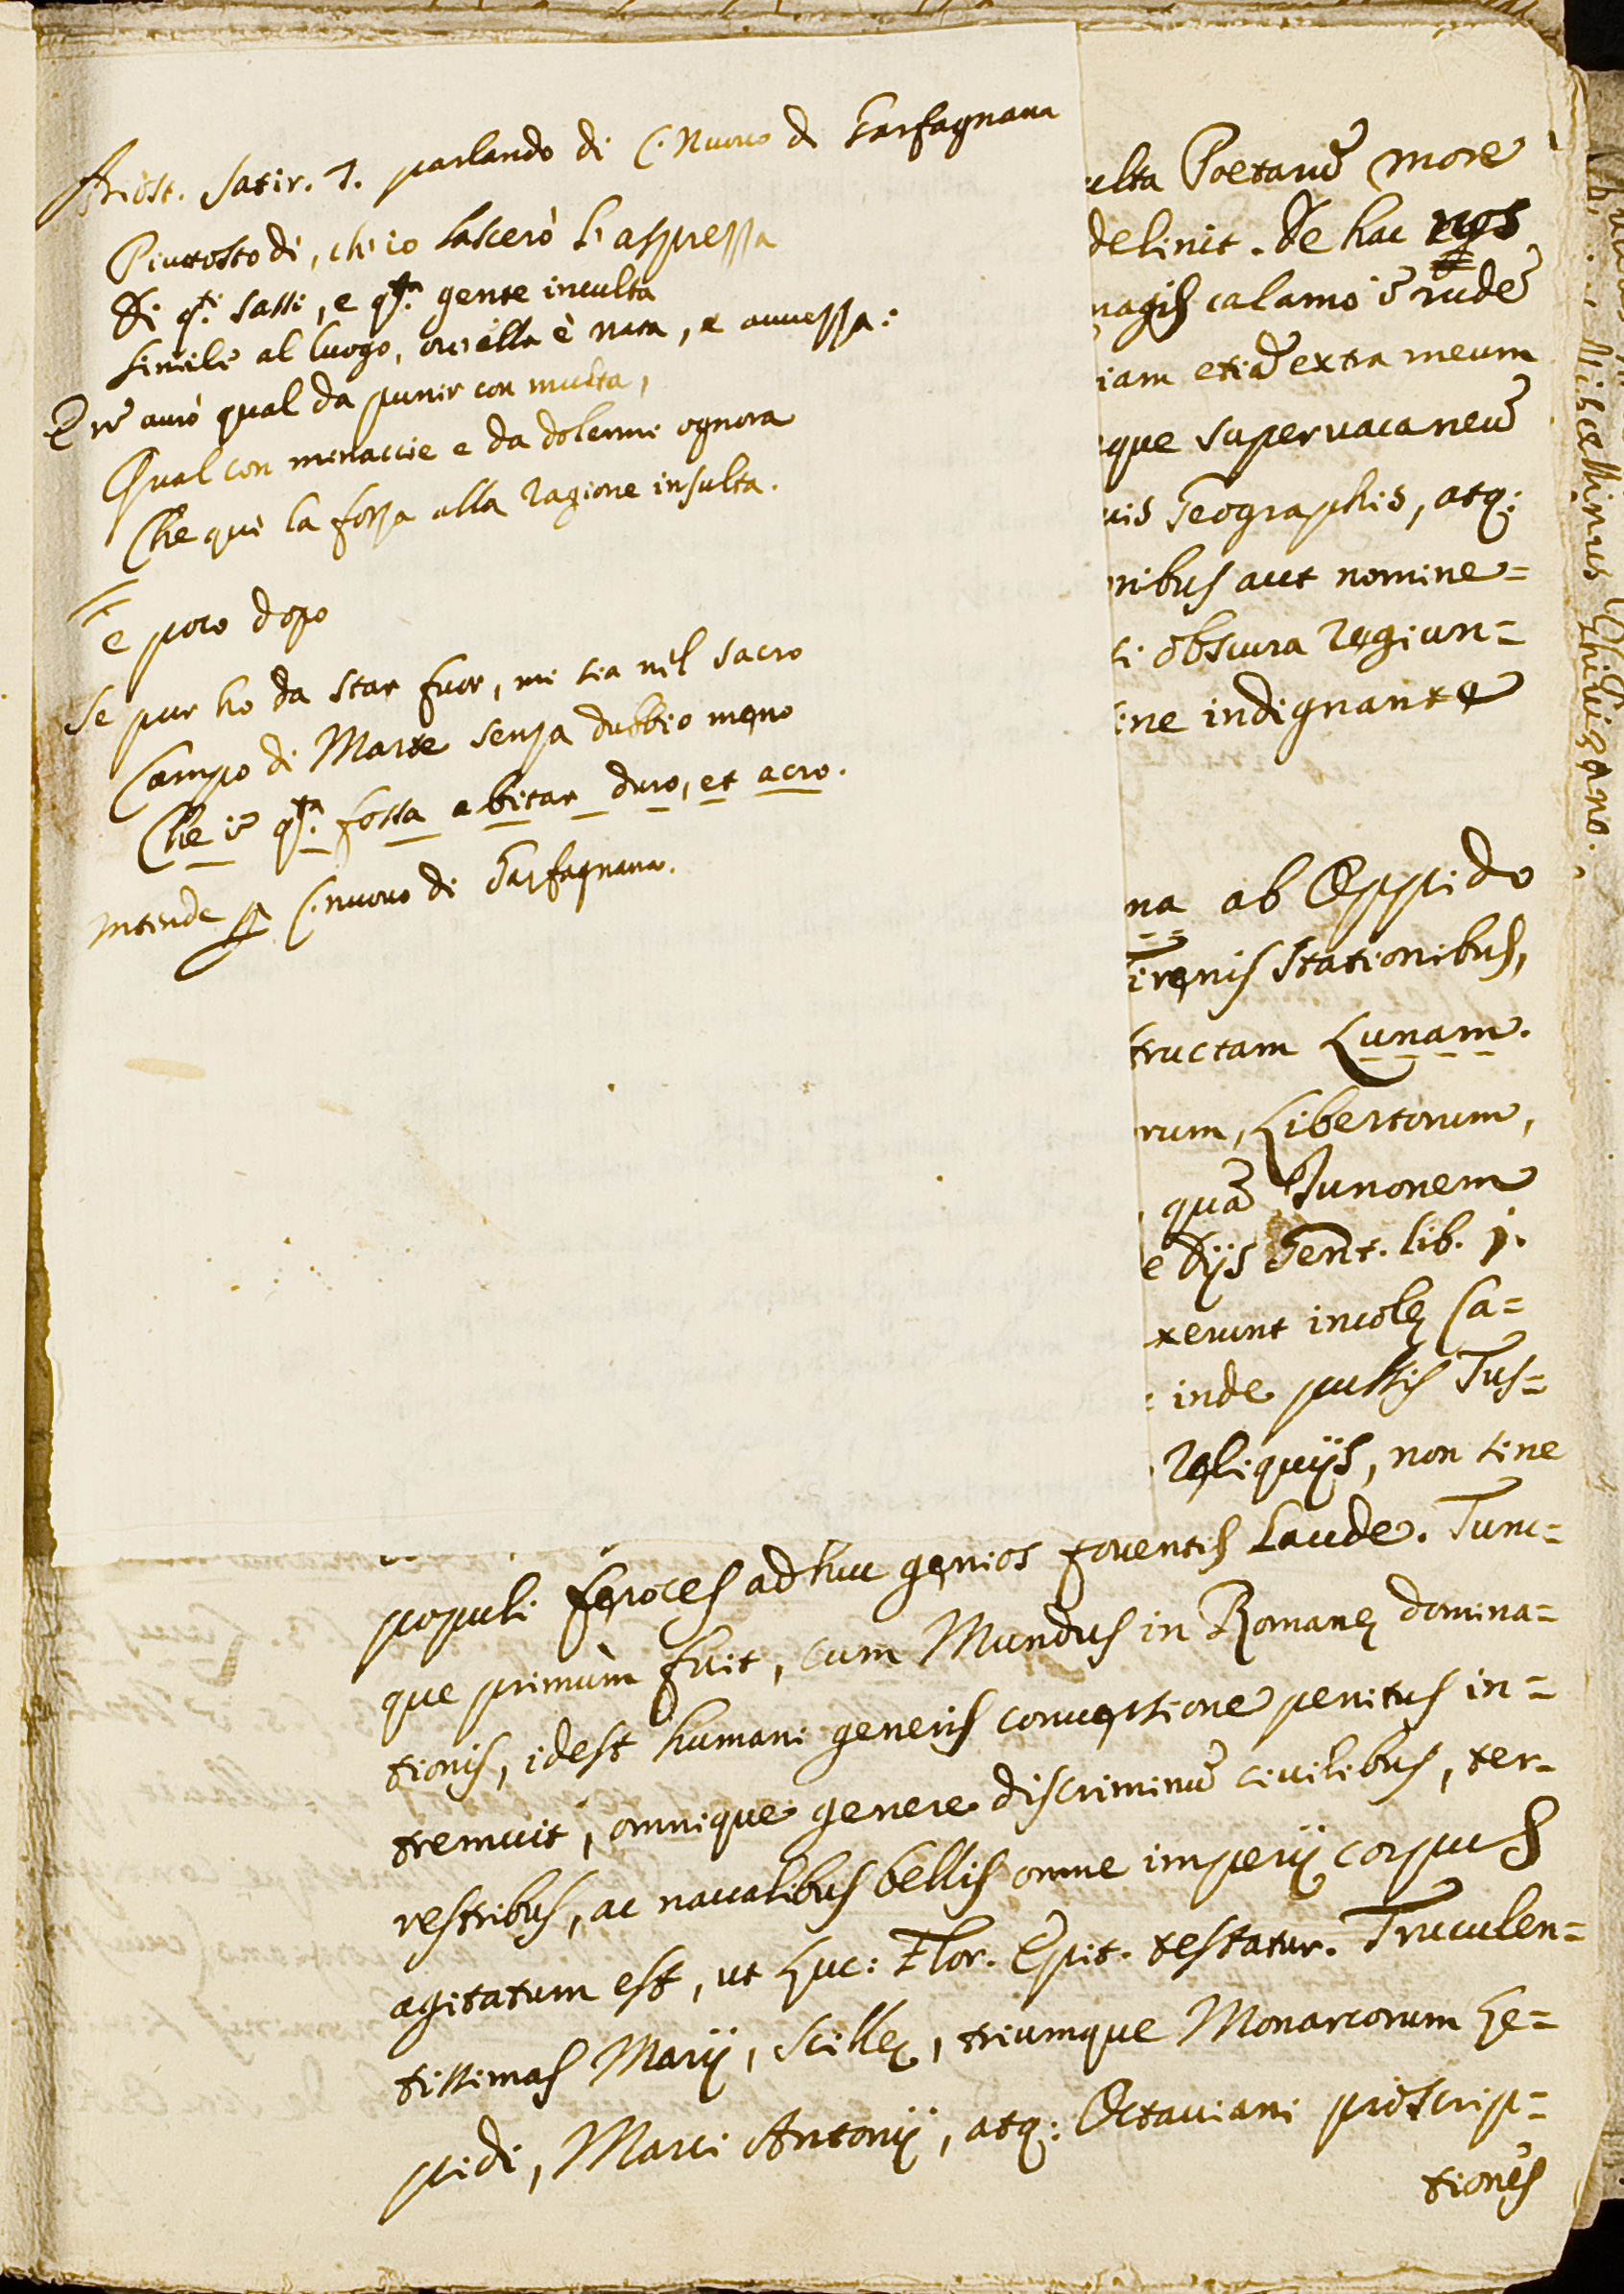 Ariost. Satir. 7. parlando di C. Nuovo di Garfagnana
Piuttosto dì, ch'io lascerò l'asprezza
Di q.ti sassi, e q.ta gente inculta
Simile al luogo, ov'ella è nata, e avvezza:
E nō avrò qual da punir con multa,
Qual con minaccie e da dolermi ognora
Che quì la forza alla ragione insulta.
e poco dopo
Se pur ho da star fuor, mi sia nel sacro
Campo di Marte senza dubbio meno
Che ī q.ta fossa abitar duro, et acro.
intende p C. nuovo di Garfagnana.
ulta Poetarū more
delinit. De hac nos
magis calamo ī rudē
iam etiā extra meum
que supervacaneū
vis Geographis, atq:
nibus aut nomine=
ti obscura regiun=
ine indignante
na ab Oppido
Tirenis stationibus,
tructam Lunam.
rum, Libertorum,
quā Junonem
e Dijs Gent. lib. j.
xerunt incolę Ca=
inde pulsis Tus=
Reliquijs, non sine
populi feroces adhuc genios foventis laude. Tunc=
que primùm fuit, cum Mundus in Romanę domina=
tionis, idest humani generis conversione penitus in=
tremuit, omnique genere discriminū civilibus, ter=
restribus, ac navalibus bellis omne imperij corpus
agitatum est, ut Luc: Flor. Epit. testatur. Truculen=
tissimas Marij, Scillę, triumque Monarcorum Le=
pidi, Marci Antonij, atq: Octaviani proscrip=
tiones
Miscellinus
Ghivizzano.